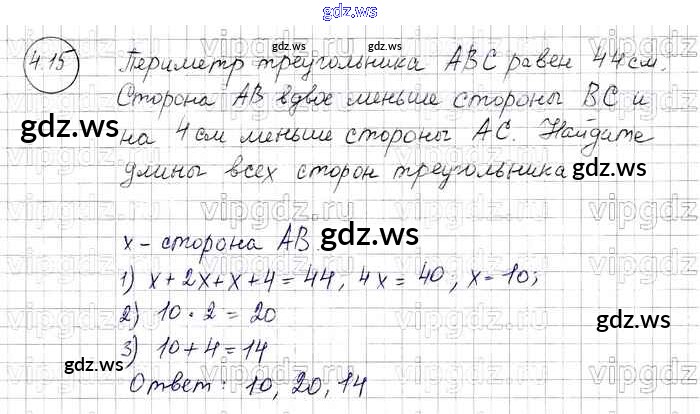 gdz.ws
4.15
Периметр треугольника ABC равен 44 см.
Сторона AB вдвое меньше стороны BC и
на 4 см меньше стороны AC. Найдите
длины всех сторон треугольника
x - сторона AB
1) x + 2x + x + 4 = 44, 4x = 40; x = 10;
2) 10 · 2 = 20
3) 10 + 4 = 14
Ответ: 10, 20, 14
gdz.ws
gdz.ws
gdz.ws
gdz.ws
gdz.ws
gdz.ws
gdz.ws
gdz.ws
gdz.ws
vipgdz.ws
vipgdz.ws
vipgdz.ws